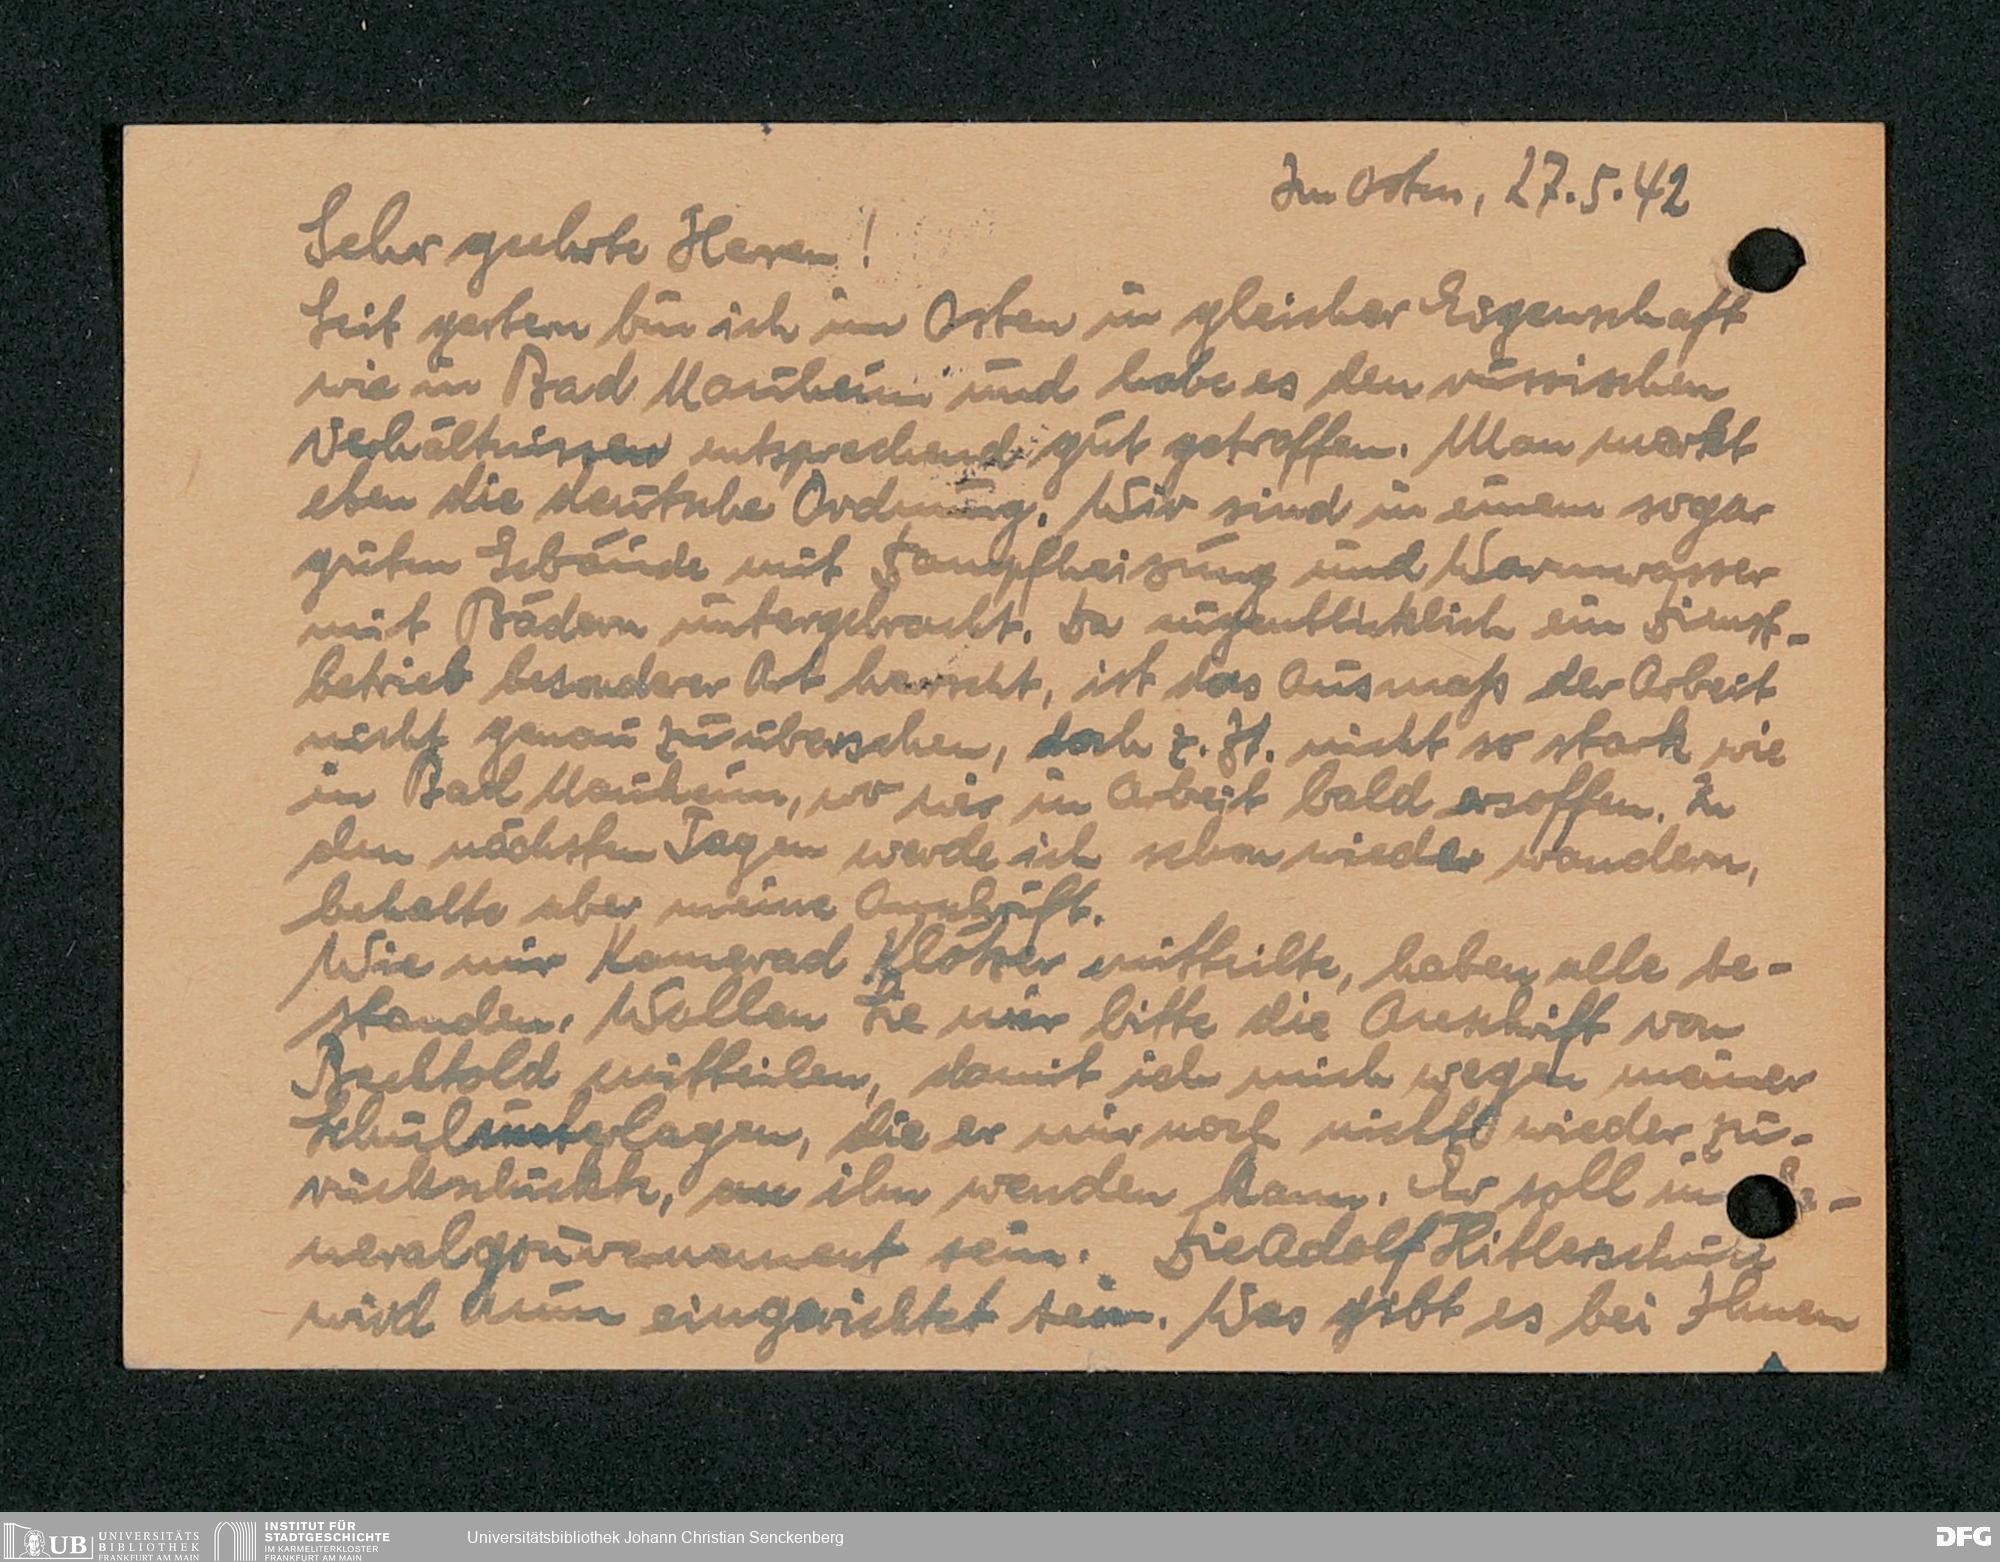 Im Osten, 27.5.42
Sehr geehrte Herren!
Seit gestern bin ich im Osten in gleicher Eigenschaft
wie in Bad Nauheim und habe es den russischen
Verhältnissen entsprechend gut getroffen. Man merkt
eben die deutsche Ordnung. Wir sind in einem sogar
guten Gebäude mit Dampfheizung und Warmwasser
mit Bädern untergebracht. Da augenblicklich ein Dienst-
betrieb besonderer Art herrscht, ist das Ausmaß der Arbeit
nicht genau zu übersehen, doch z. Zt. nicht so stark wie
in Bad Nauheim, wo wir in Arbeit bald ersoffen. In
den nächsten Tagen werde ich schon wieder wandern,
behalte aber meine Anschrift.
Wie mir Kamerad Klötzer mitteilte, haben alle be-
standen. Wollen Sie mir bitte die Anschrift von
Bechtold mitteilen, damit ich mich wegen meiner
Schulunterlagen, die er mir noch nicht wieder zu-
rückschickte, an ihn wenden kann. Er soll im Ge-
neralgouvernement sein. Die Adolf Hitlerschule
wird nun eingerichtet sein. Was gibt es bei Ihnen
UB UNIVERSITÄTS
BIBLIOTHEK
FRANKFURT AM MAIN
INSTITUT FÜR
STADTGESCHICHTE
IM KARMELITERKLOSTER
FRANKFURT AM MAIN
Universitätsbibliothek Johann Christian Senckenberg
DFG